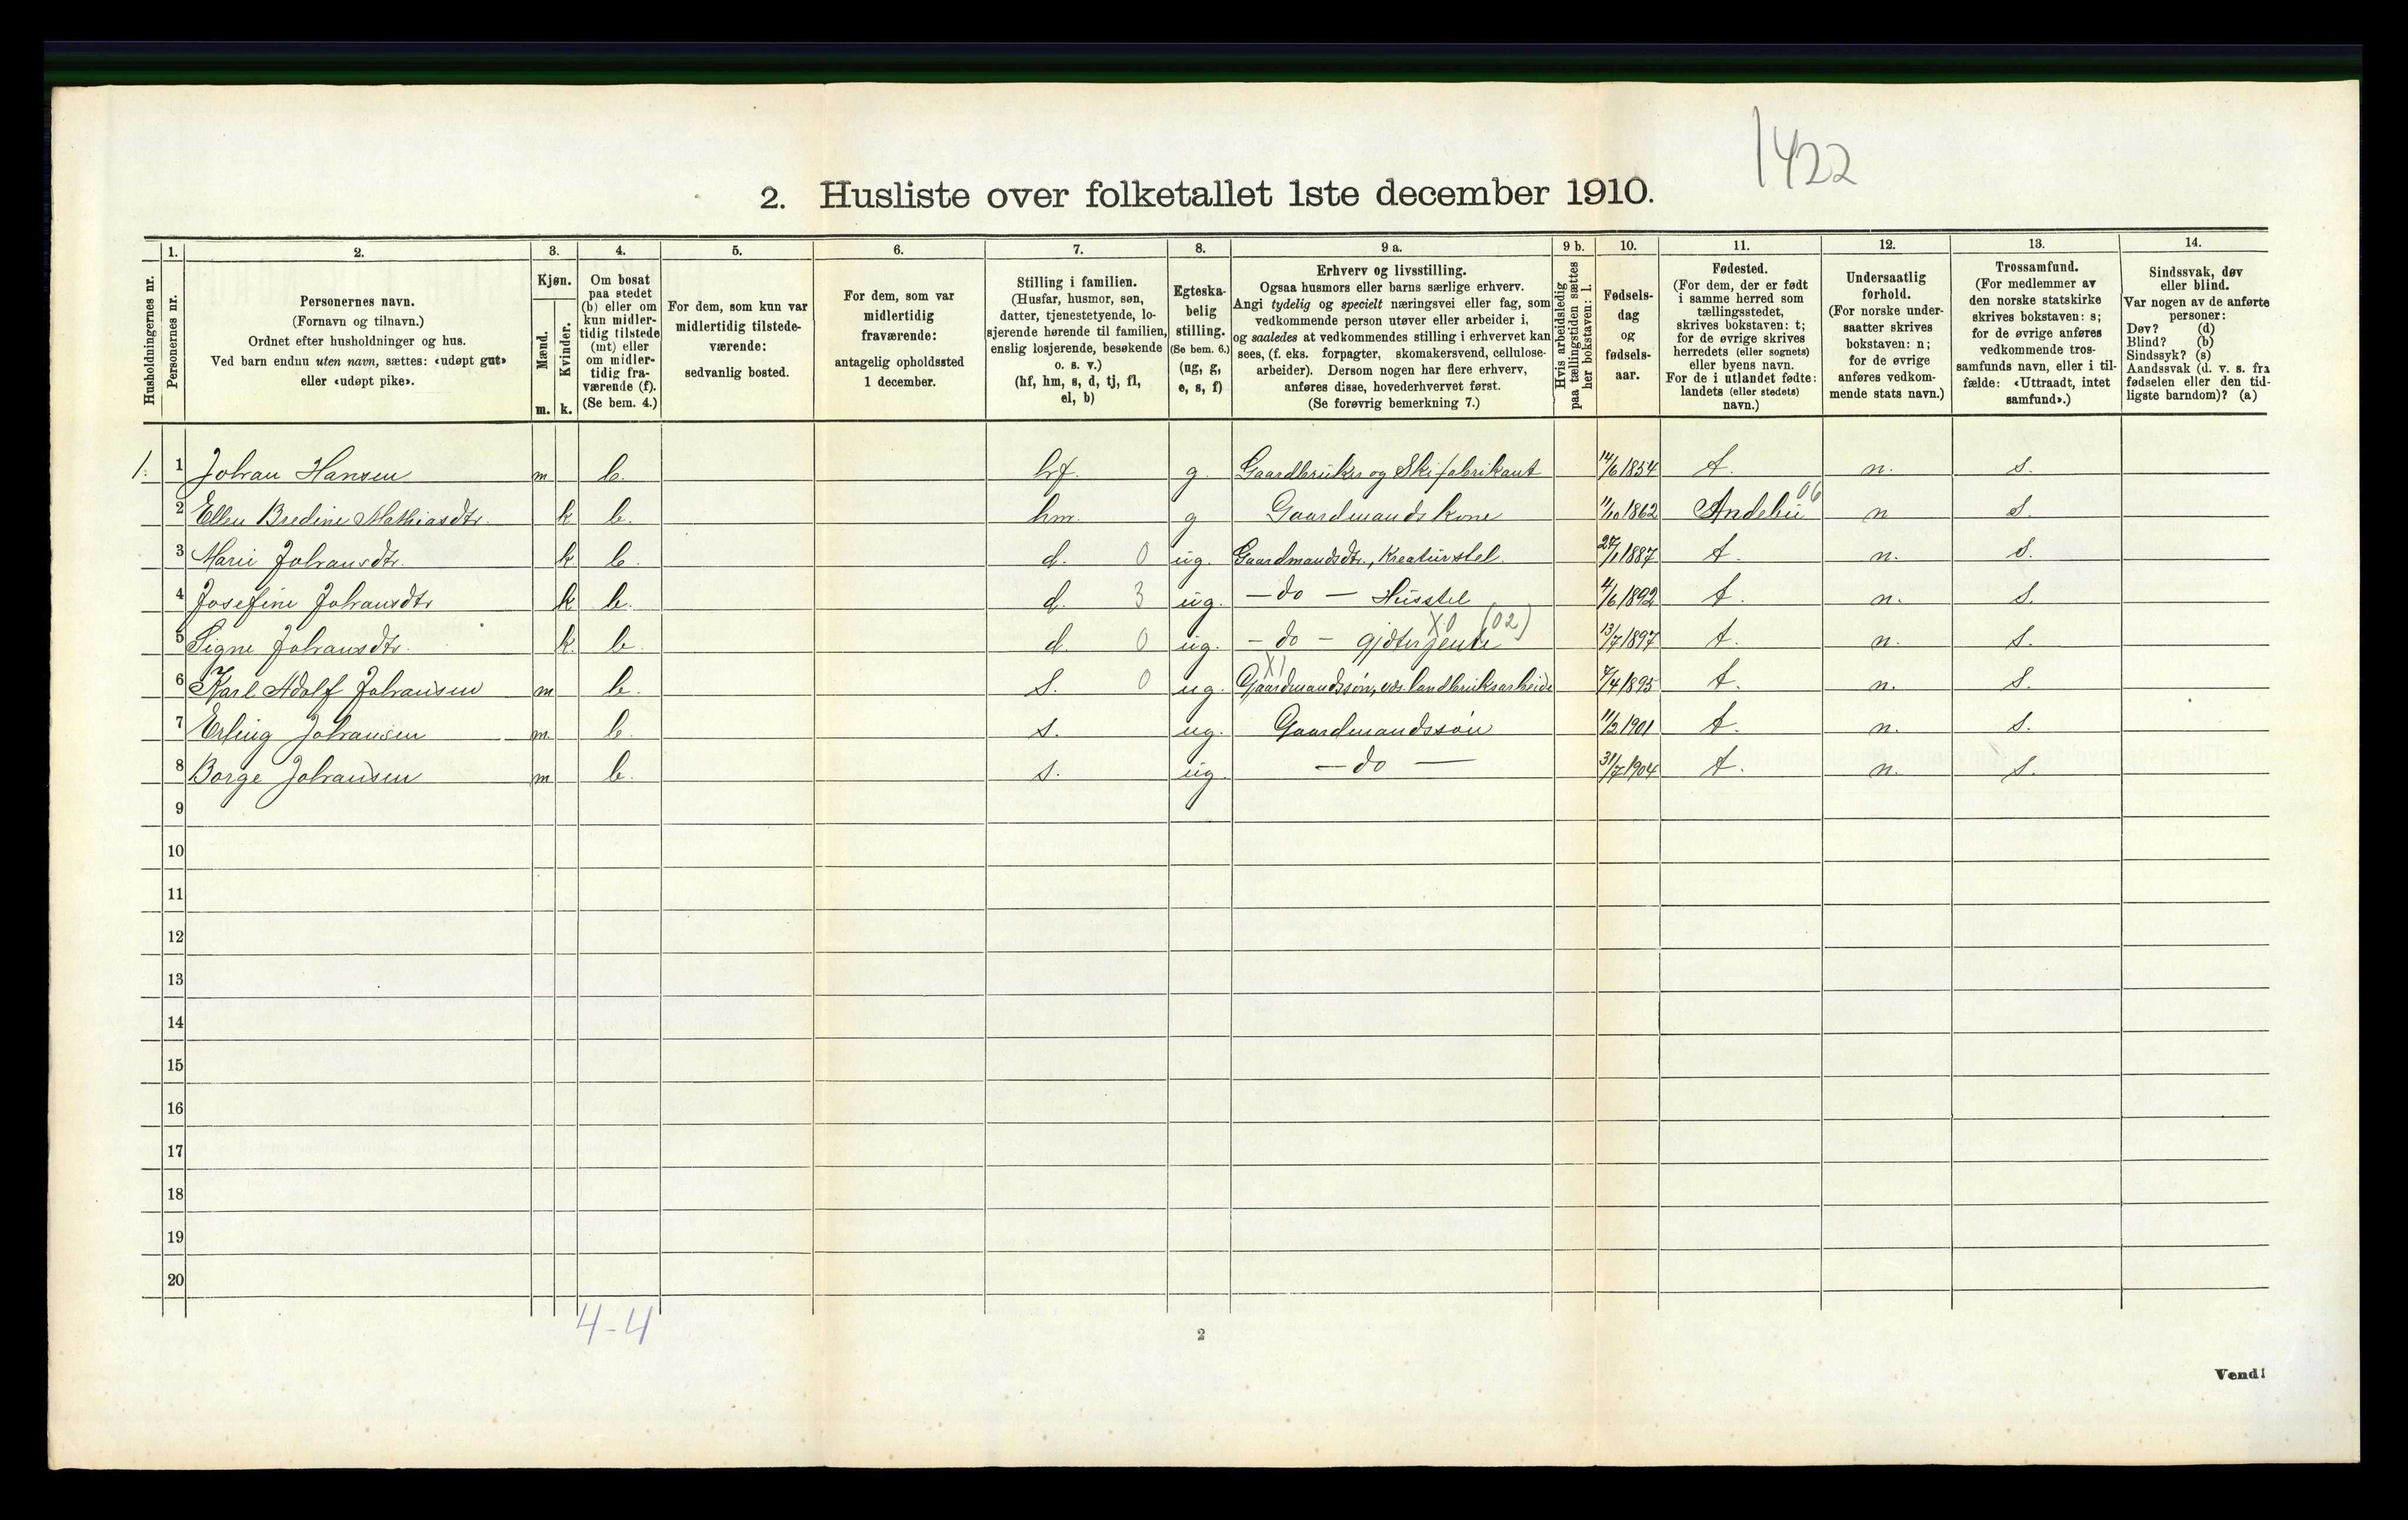 1422
2. Husliste over folketallet 1ste december 1910.
Husholdningernes nr.
1.
Personernes nr.
2.
Personernes navn.
(Fornavn og tilnavn.)
Ordnet efter husholdninger og hus.
Ved barn endnu uten navn, sættes: «udøpt gut»
eller «udøpt pike».
3.
Kjøn.
Mænd.
Kvinder.
m. k.
4.
Om bosat
paa stedet
(b) eller om
kun midler-
tidig tilstede
(mt) eller
om midler-
tidig fra-
værende (f).
(Se bem. 4.)
5.
For dem, som kun var
midlertidig tilstede-
værende:
sedvanlig bosted.
6.
For dem, som var
midlertidig
fraværende:
antagelig opholdssted
1 december.
7.
Stilling i familien.
(Husfar, husmor, søn,
datter, tjenestetyende, lo-
sjerende hørende til familien,
enslig losjerende, besøkende
o. s. v.)
(hf, hm, s, d, tj, fl,
el, b)
8.
Egteska-
belig
stilling.
(Se bem. 6.)
(ug, g,
e, s, f)
9 a.
Erhverv og livsstilling.
Ogsaa husmors eller barns særlige erhverv.
Angi tydelig og specielt næringsvei eller fag, som
vedkommende person utøver eller arbeider i,
og saaledes at vedkommendes stilling i erhvervet kan
sees, (f. eks. forpagter, skomakersvend, cellulose-
arbeider). Dersom nogen har flere erhverv,
anføres disse, hovederhvervet først.
(Se forøvrig bemerkning 7.)
9 b.
Hvis arbeidsledig
paa tællingstiden sættes
her bokstaven: l.
10.
Fødsels-
dag
og
fødsels-
aar.
11.
Fødested.
(For dem, der er født
i samme herred som
tællingsstedet,
skrives bokstaven: t;
for de øvrige skrives
herredets (eller sognets)
eller byens navn.
For de i utlandet fødte:
landets (eller stedets)
navn.)
12.
Undersaatlig
forhold.
(For norske under-
saatter skrives
bokstaven: n;
for de øvrige
anføres vedkom-
mende stats navn.)
13.
Trossamfund.
(For medlemmer av
den norske statskirke
skrives bokstaven: s;
for de øvrige anføres
vedkommende tros-
samfunds navn, eller i til-
fælde: «Uttraadt, intet
samfund».)
14.
Sindssvak, døv
eller blind.
Var nogen av de anførte
personer:
Døv? (d)
Blind? (b)
Sindssyk? (s)
Aandssvak (d. v. s. fra
fødselen eller den tid-
ligste barndom)? (a)
1. 1 Johan Hansen m b. hf. g. Gaardbruker og Skifabrikant 14/6 1854 t. n. s.
2 Ellen Bredine Mathiasdtr. k b. hm. g Gaardmandskone 11/10 1862 Andebu 06 n s.
3 Marie Johansdtr. k b. d. 0 ug. Gaardmandsdtr., Kreaturstel. 27/1 1887 t. n. s.
4 Josefine Johansdtr k b. d. 3 ug. — do — Husstel 4/6 1892 t. n. s.
5 Signe Johansdtr. k. b. d. 0 ug. — do — gjøterjente X0 (02) 13/7 1897 t. n. s.
6 Karl Adolf Johansen m b. s. 0 ug. Gaardmandssøn, X1 landbruksarbeide 7/4 1895 t. n. s.
7 Erling Johansen m. b. s. ug. Gaardmandssøn 11/2 1901 t. n. s.
8 Borge Johansen m b. s. ug. — do — 31/7 1904 t. n. s.
9
10
11
12
13
14
15
16
17
18
19
20
4-4
2
Vend!